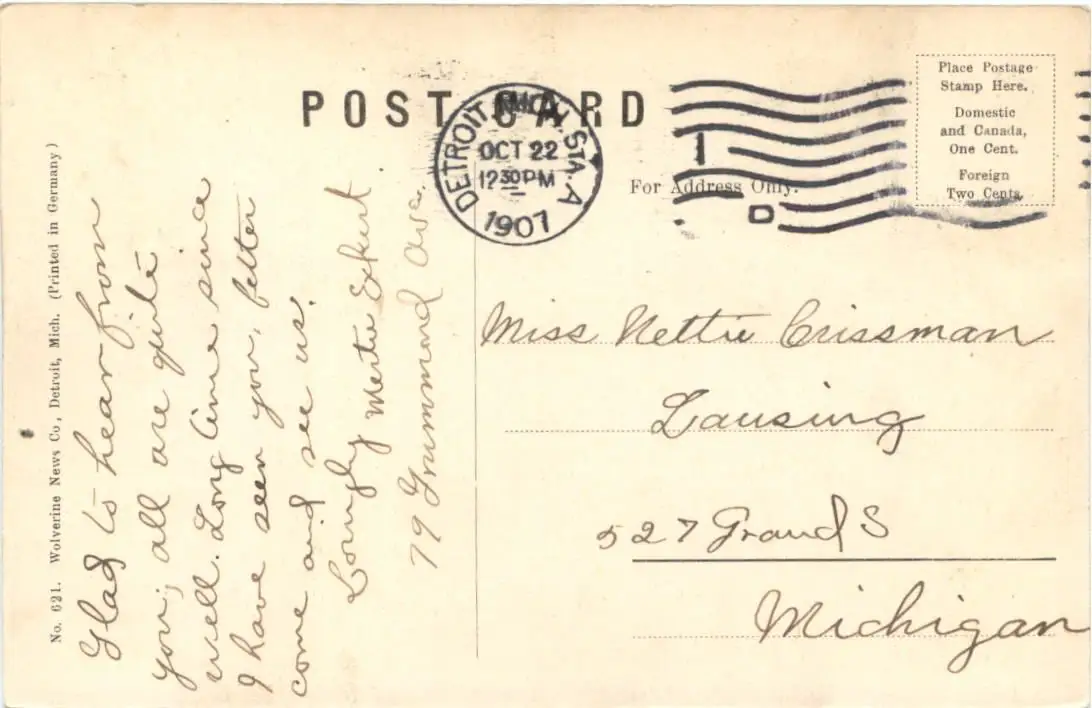 POST CARD
DETROIT, MICH. STA. A
OCT 22
12 30 PM
1907
1
D
Place Postage
Stamp Here.
Domestic
and Canada,
One Cent.
Foreign
Two Cents.
For Address Only.
No. 621. Wolverine News Co., Detroit, Mich. (Printed in Germany)
Glad to hear from
you, all are quite
well. Long time since
I have seen you, better
come and see us.
Lovingly Mertie
79 Grummond Ave.
Miss Nettie Crissman
Lansing
527 Grand S
Michigan